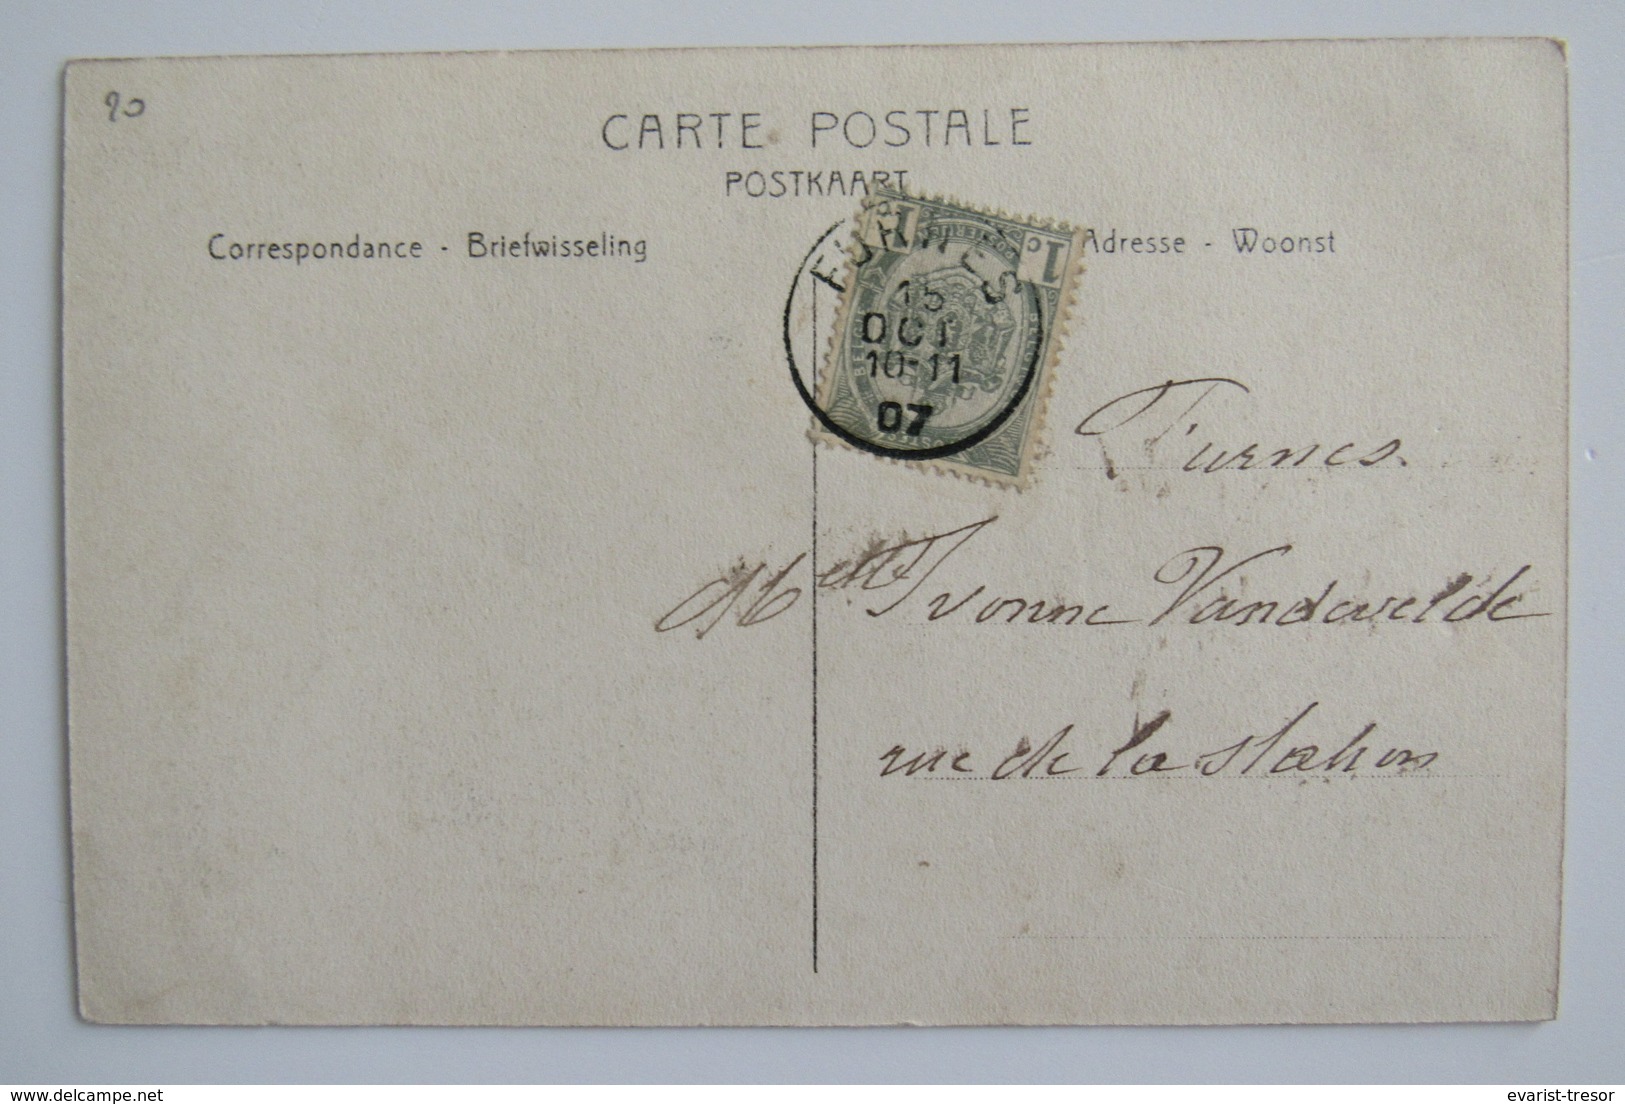 20
CARTE POSTALE
POSTKAART
Correspondance - Briefwisseling
Adresse - Woonst
1 c 1
FURNES
15
OCT
10-11
07
Furnes.
Melle Yvonne Vandevelde
rue de la station
www.delcampe.net
evarist-tresor